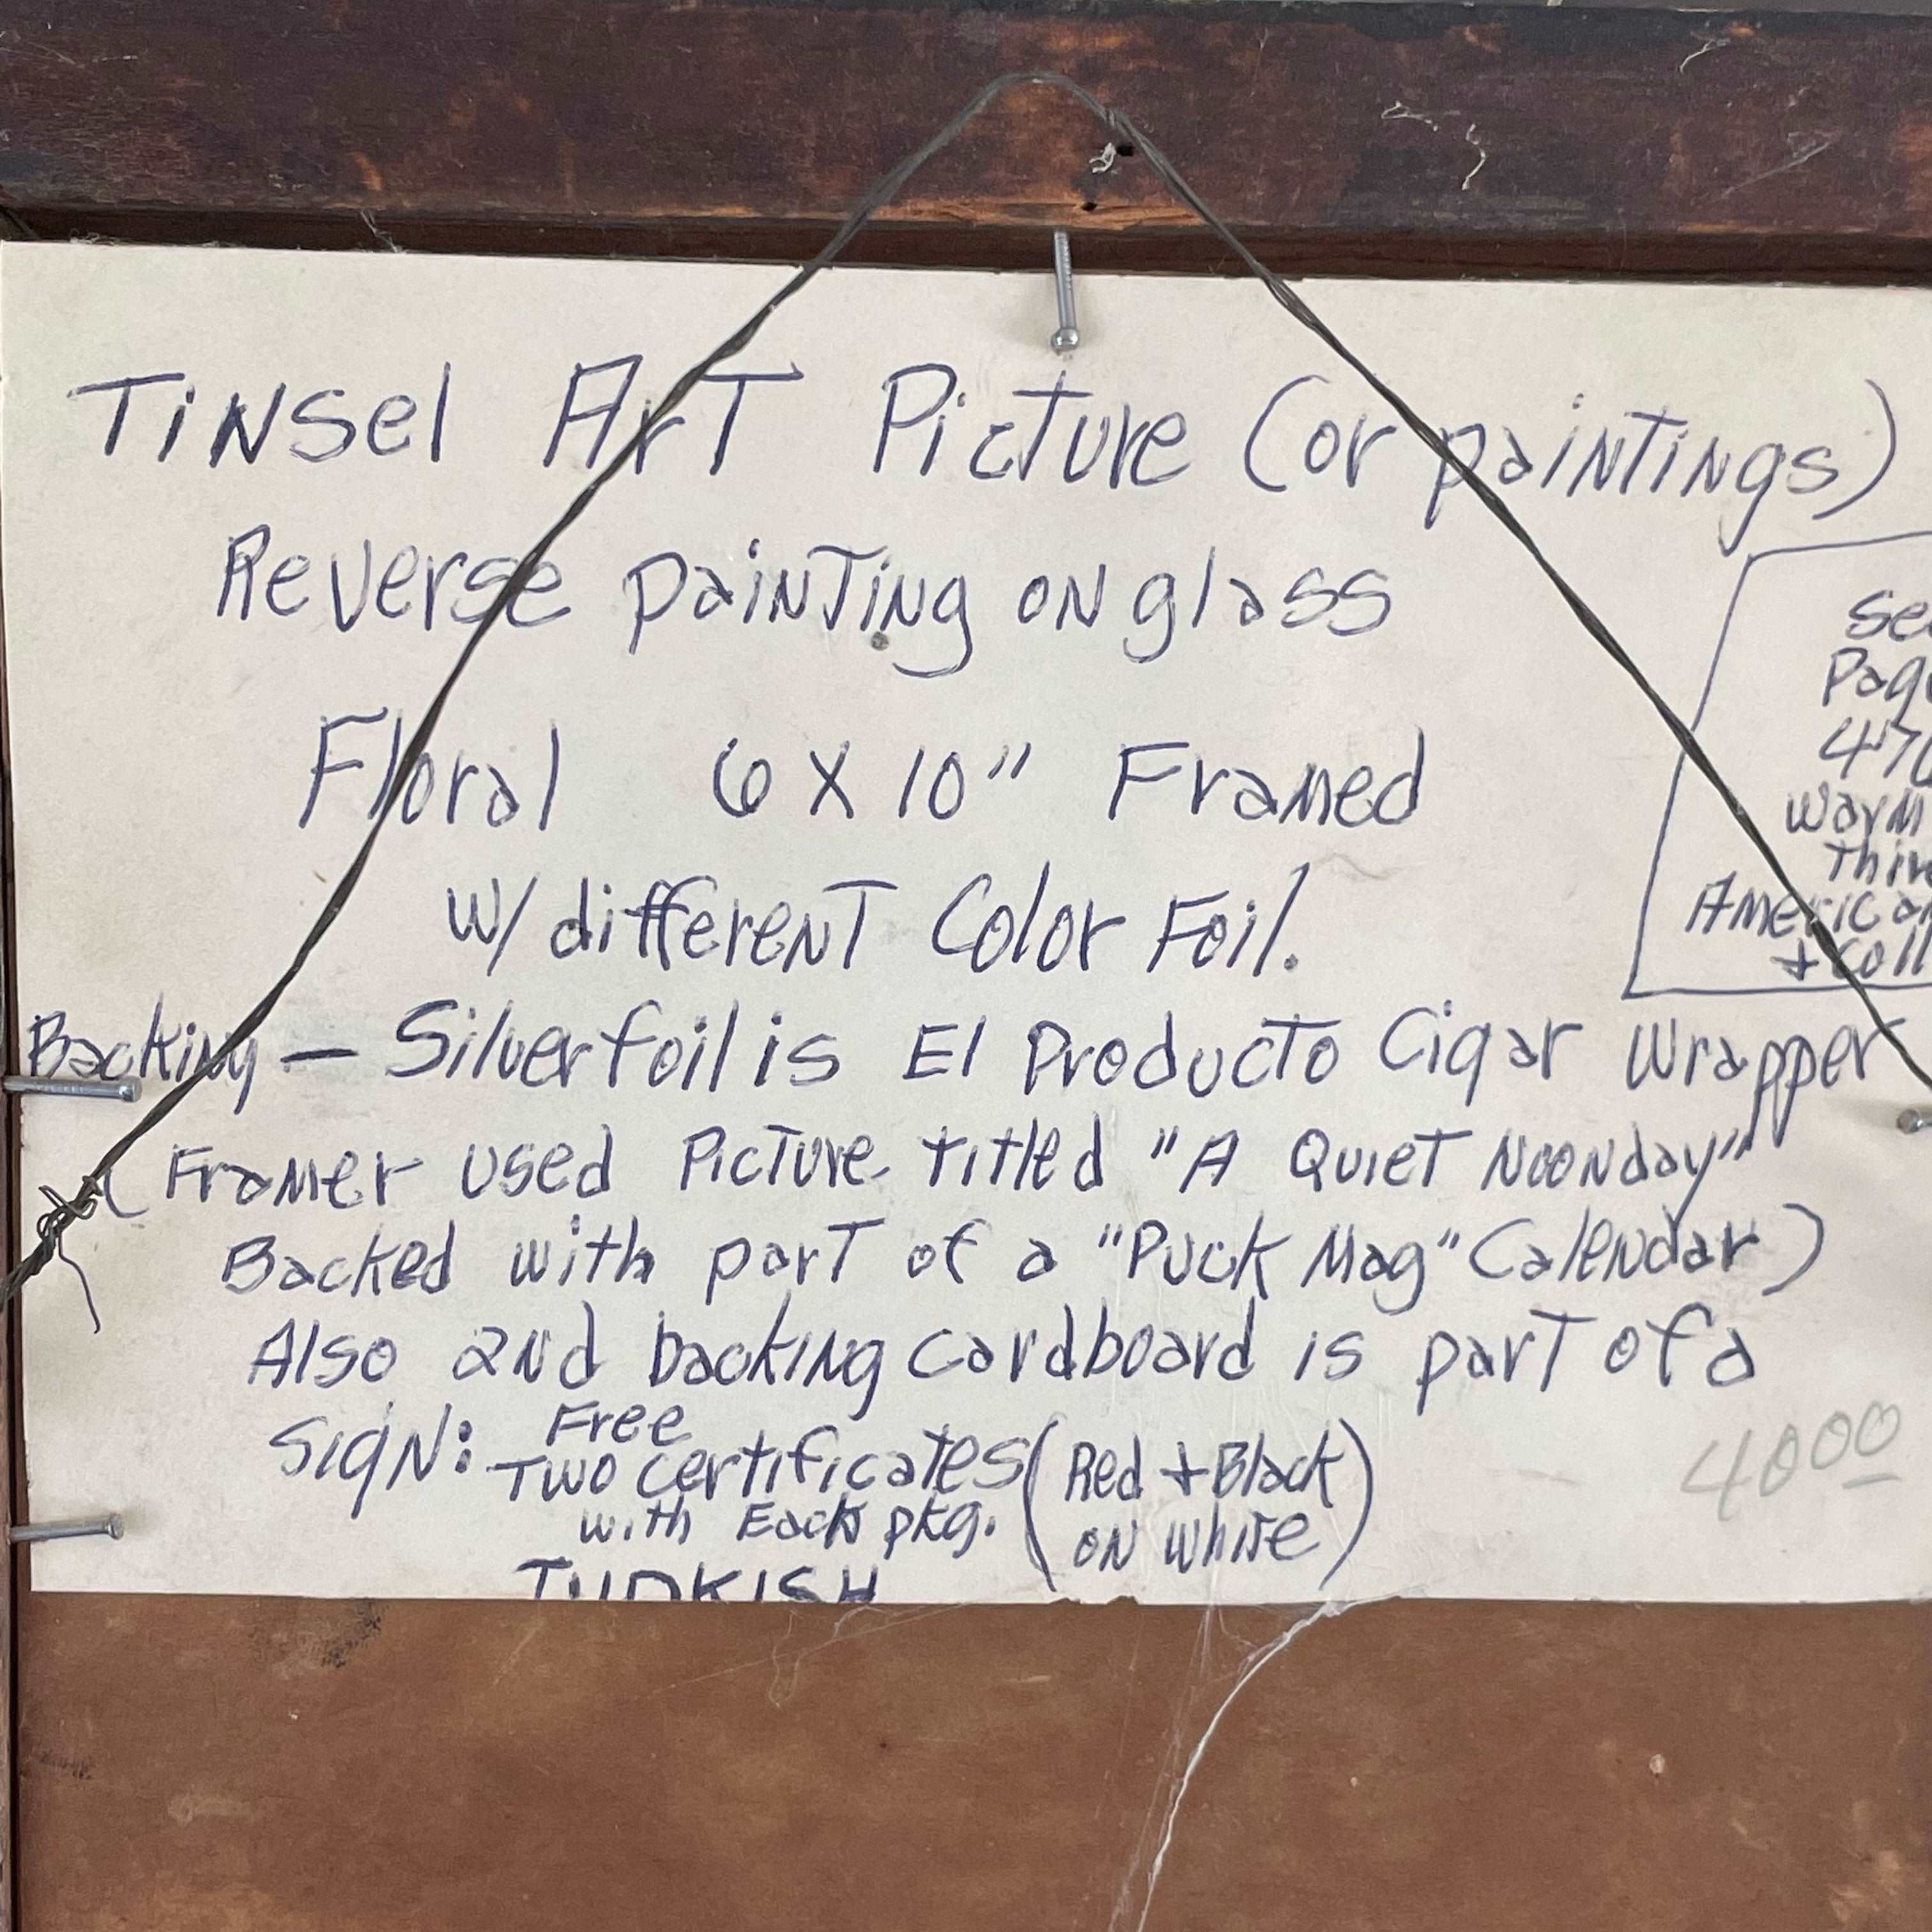 Tinsel Art Picture (or paintings)
Reverse painting on glass
Floral 6 X 10" Framed
w/ different Color Foil.
Backing — Silver foil is El Producto Cigar Wrapper
(Framer used Picture titled "A Quiet Noonday"
Backed with part of a "Puck Mag" Calendar)
Also 2nd backing cardboard is part of a
Sign: Free
Two certificates (Red + Black
with Each pkg. on white)
TURKISH
4000
American